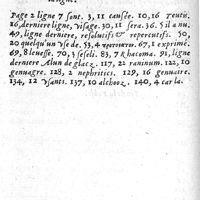 Page 2 ligne 7 sont. 3, 11 causée. 10, 16
16, derniere ligne, visage. 30, 11 sera. 36. 5 il a nu
49, ligne derniere, resolutifs repercutifs. 50,
20 quelqu'un vse de 53, 4 67, 8 exprimé
69, 8 leuesse. 70, 3 seseli. 83, 7 Rhacoma. 91, ligne
derniere Alun de glacz. 117, 22 raninum. 122, 10
genuagre. 128, 2 nephritics. 129, 16 genuatre.
134, 12 ysants. 137, 10 alchooz. 140, 4 car la.